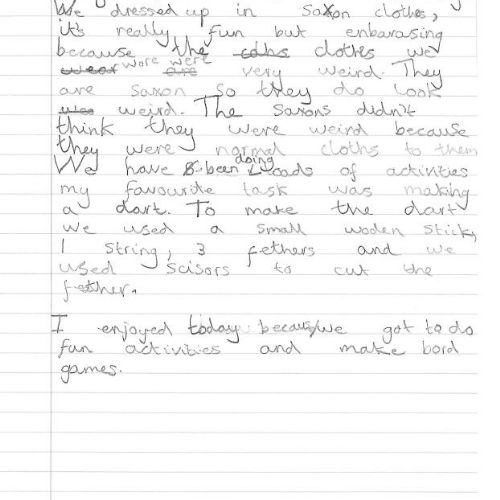 We dressed up in Saxon clothes,
it's really fun but enbarasing
because the clothes we
wore were very weird. They
are Saxon so they do look
weird. The Saxons didn't
think they were weird because
they were normal cloths to them
We have been doing loads of activities
my favourite task was making
a dart. To make the dart
we used a small woden stick,
1 string, 3 fethers and we
used scisors to cut the
fether.
I enjoyed today because we got to do
fun activities and make bord
games.